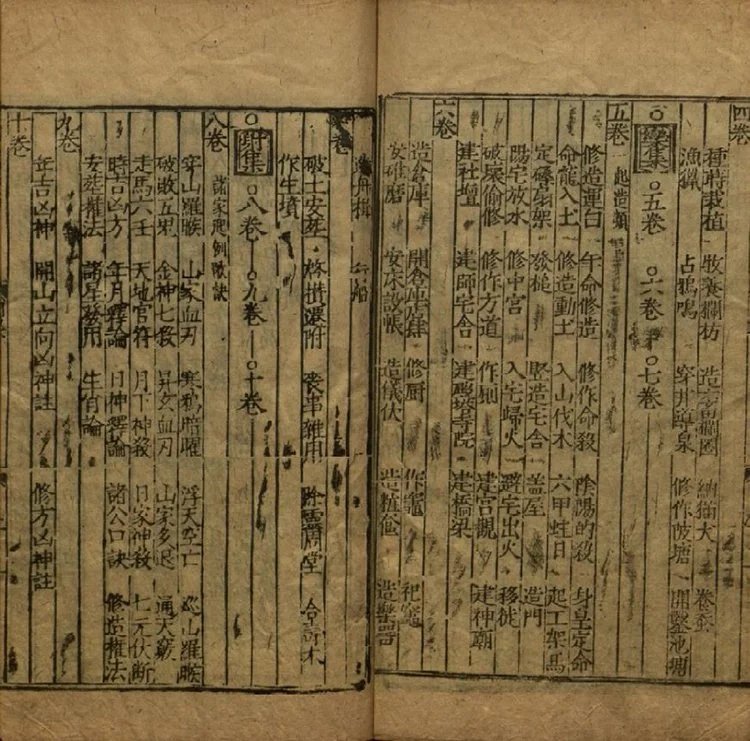 四卷
種蒔栽植 牧養欄坊 造六畜欄圈 納猫犬 養蚕
漁獵 占鴉鳴 穿井導泉 修作陂塘 開鑿池塘
集 〇五卷 〇六卷 〇七卷
五卷 一起造類
修造運白 年命修造 修作命殺 陰陽的殺 身皇定命
命龍入土 修造動土 入山伐木 六甲蛀日 起工架馬
定磉扇架 發槌 豎造宅舍 盖屋 造門
陽宅放水 修中宮 入宅歸火 避宅出火 移徙
破壞偷修 修作方道 作厠 建宮觀 建神廟
建社壇 建師宅舍 建寺院 建橋梁
六卷
造倉庫 開倉庫店肆 修厨 作竈 祀竈
安碓磨 安床設帳 造儀仗 造 造
舟楫
卷
破土安葬 附 喪事雜用 除靈周堂 合壽木
作生墳
〇附集 〇八卷 〇九卷 〇十卷
八卷 諸家起例歌訣
穿山羅睺 山家血刃 寒鴉暗曜 浮天空亡 巡山羅睺
破敗五鬼 金神七殺 昇玄血刃 山家困退 通天竅
走馬六壬 天地官符 月下神殺 日家神殺 七元伏断
時吉凶方 年月釋論 日神釋論 諸公口訣 修造權法
安葬權法 諸星發用 生肖論
九卷
年吉凶神 開山立向凶神註 修方凶神註
十卷